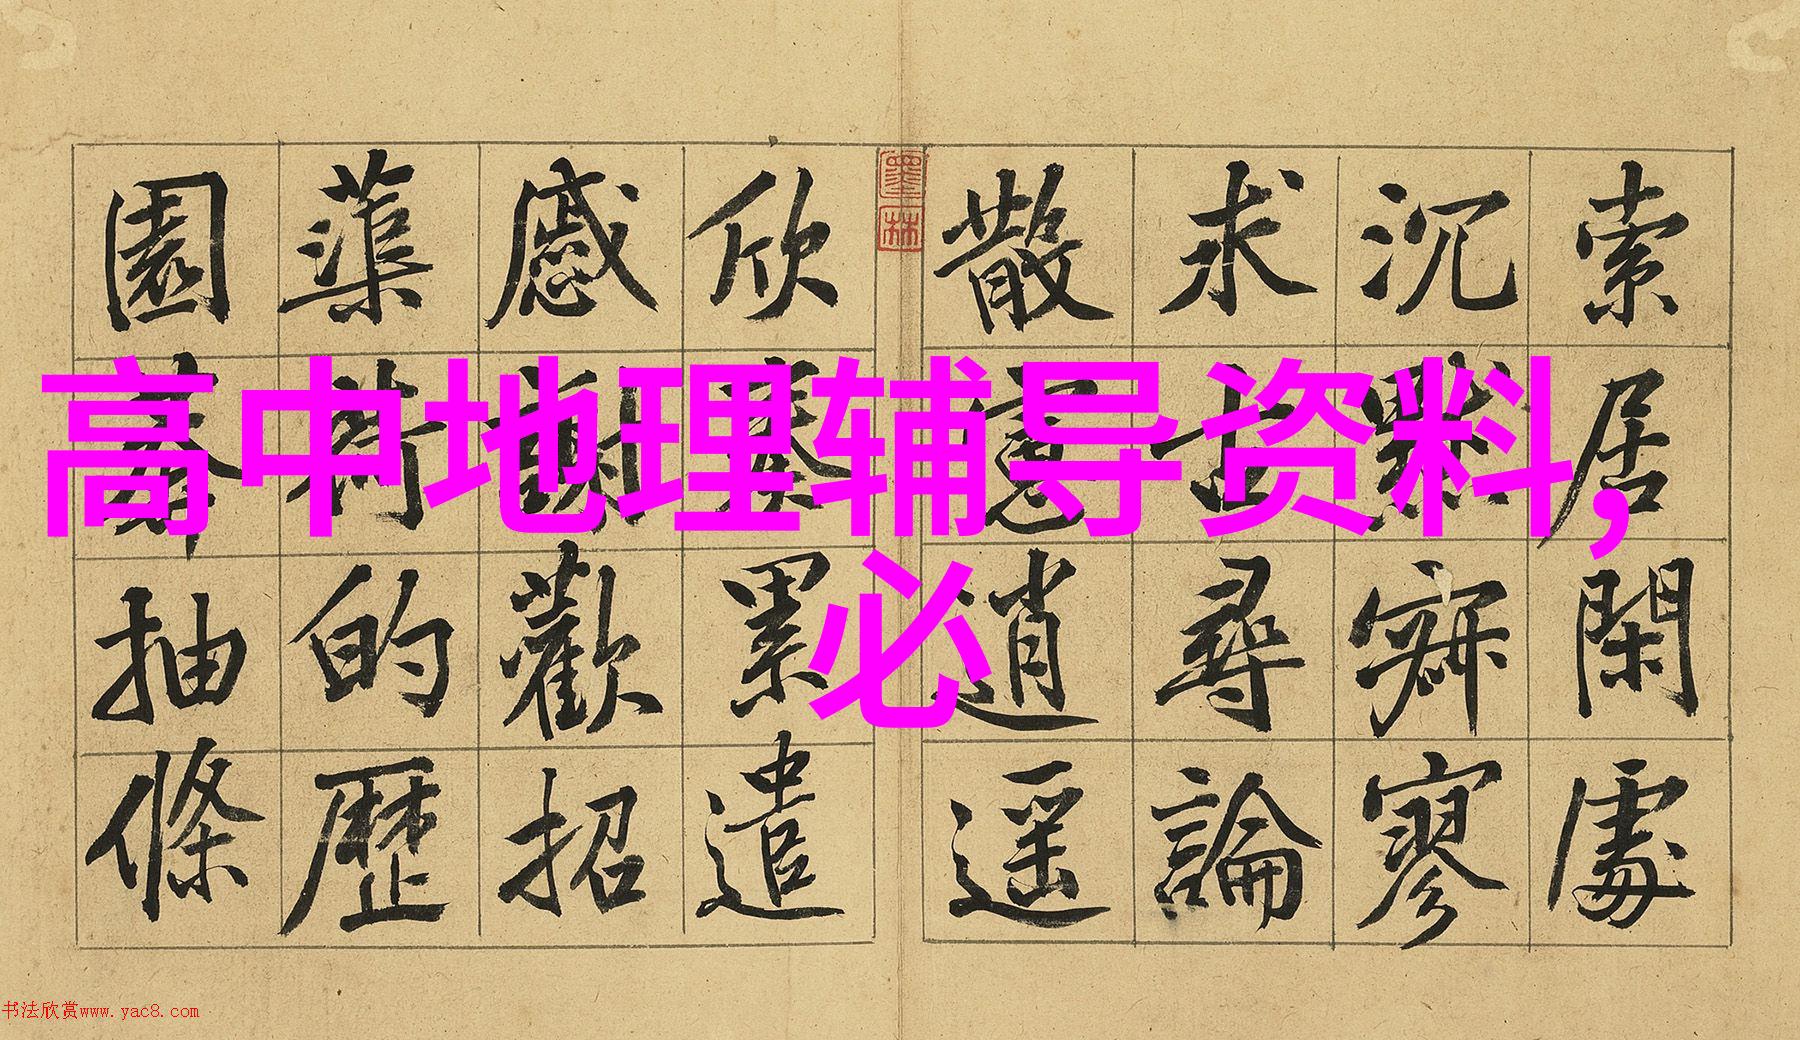 高中地理辅导资料，
必
索居閑處
沉默寂寥
求尋論
散慮逍遥
墨林
欣奏累遣
慼謝歡招
蕖荷的歷
園抽條
书法欣赏www.yac8.com